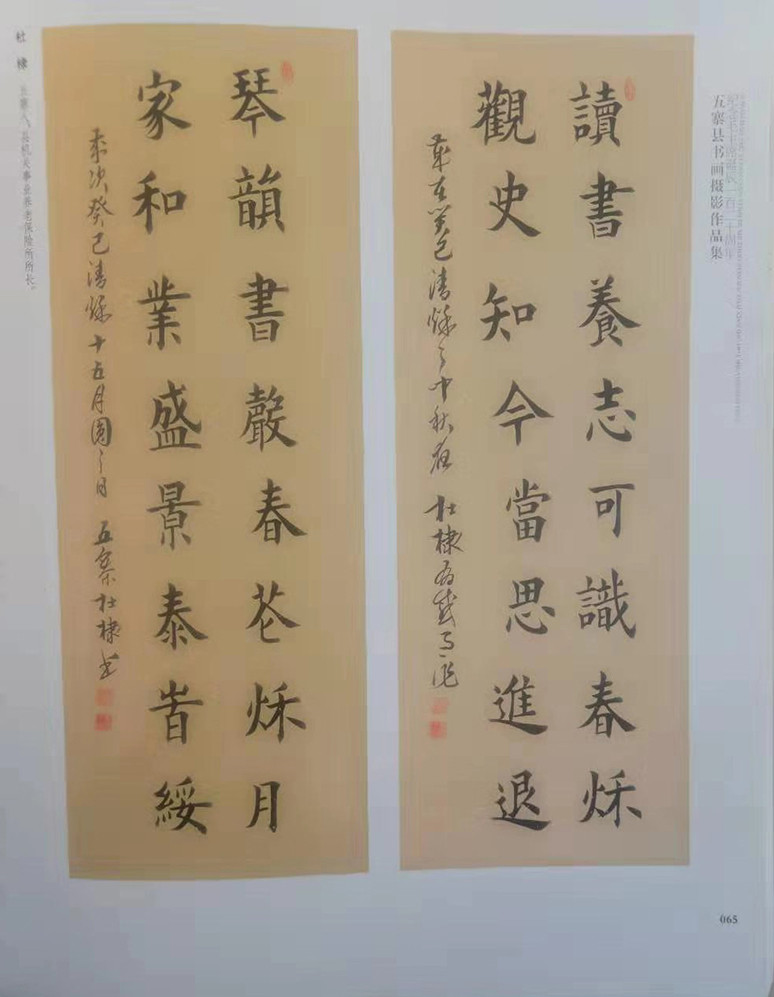 五寨县书画摄影作品集
讀書養志可識春秌
觀史知今當思進退
歲在癸巳清秌之中秋夜 杜棣
琴韻書聲春芲秌月
家和業盛景泰岧綏
歲次癸巳清秌十五月圓之日 五寨杜棣书
杜棣
五寨人，县机关事业养老保险所所长。
065